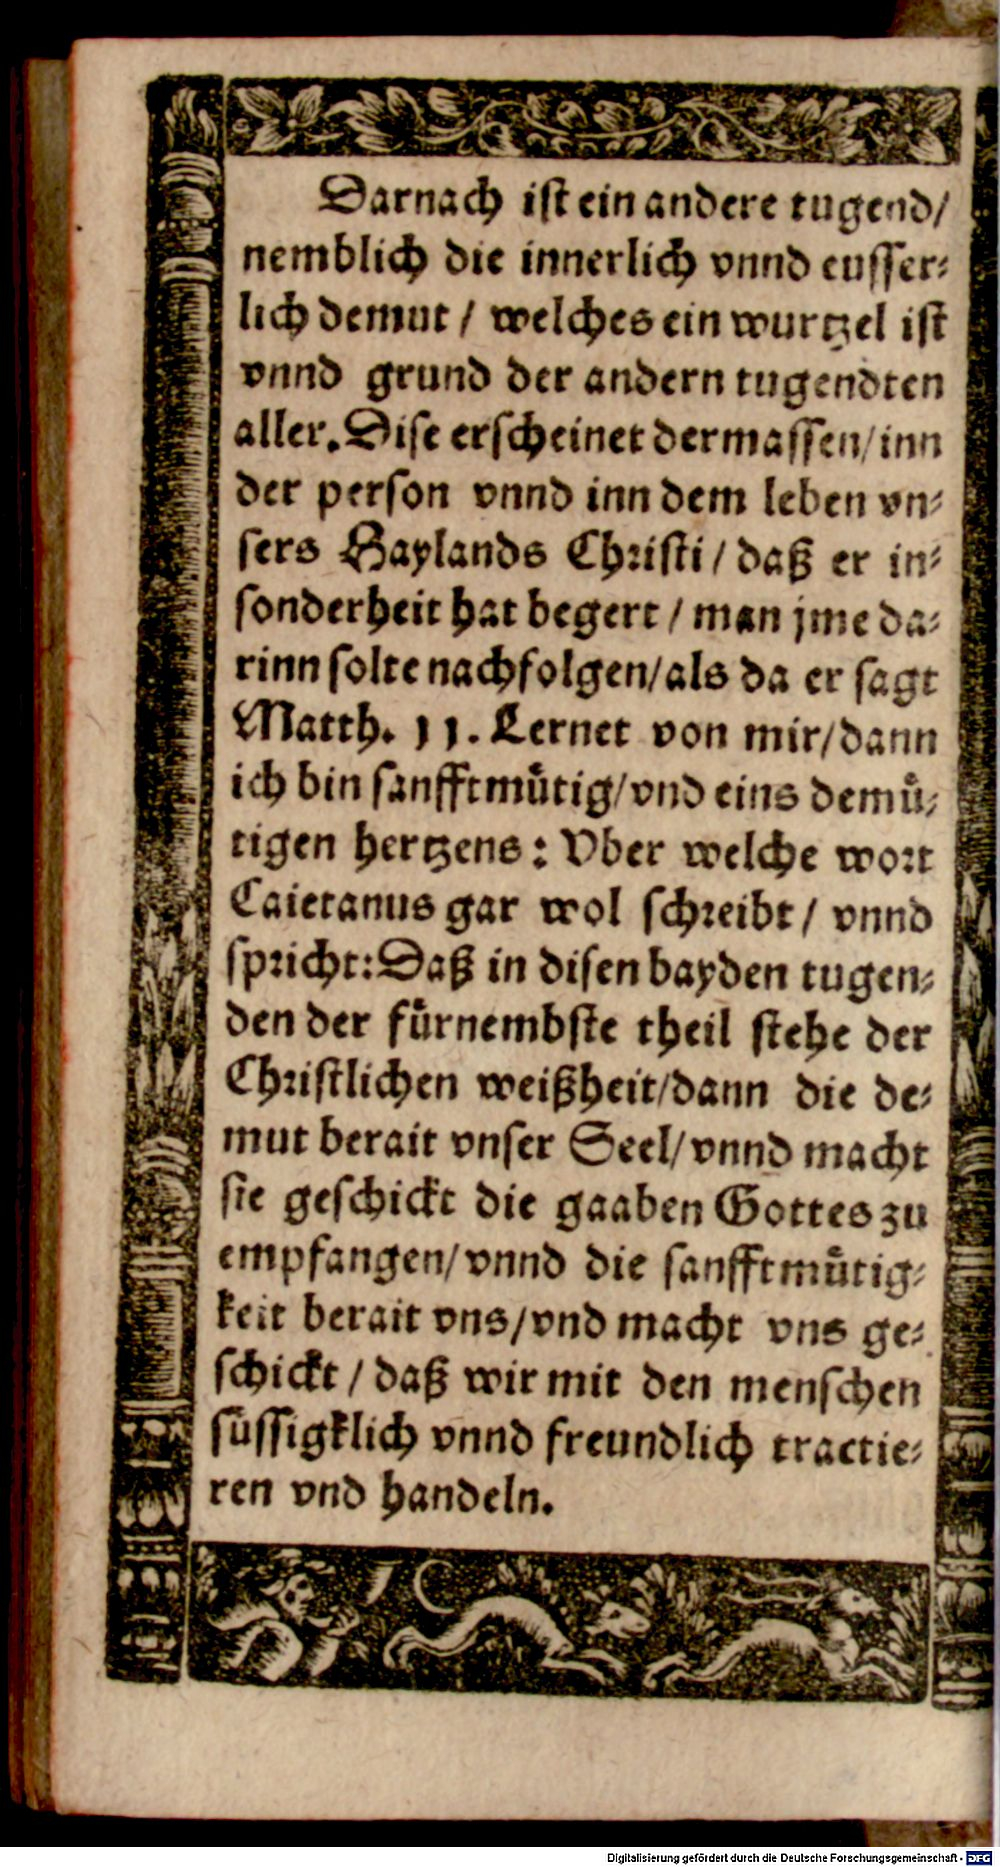 Darnach ist ein andere tugend/
nemblich die innerlich vnnd eusser⸗
lich demut / welches ein wurtzel ist
vnnd grund der andern tugendten
aller. Dise erscheinet dermassen/ inn
der person vnnd inn dem leben vn⸗
sers Haylands Christi / daß er in⸗
sonderheit hat begert / man jme da⸗
rinn solte nachfolgen/ als da er sagt
Matth. 11. Lernet von mir/ dann
ich bin sanfftmuͤtig/ vnd eins demuͤ⸗
tigen hertzens: Vber welche wort
Caietanus gar wol schreibt / vnnd
spricht: Daß in disen bayden tugen⸗
den der fuͤrnembste theil stehe der
Christlichen weißheit/ dann die de⸗
mut berait vnser Seel/ vnnd macht
sie geschickt die gaaben Gottes zu
empfangen/ vnnd die sanfftmuͤtig⸗
keit berait vns/ vnd macht vns ge⸗
schickt / daß wir mit den menschen
suͤssigklich vnnd freundlich tractie⸗
ren vnd handeln.
Digitalisierung gefördert durch die Deutsche Forschungsgemeinschaft - DFG